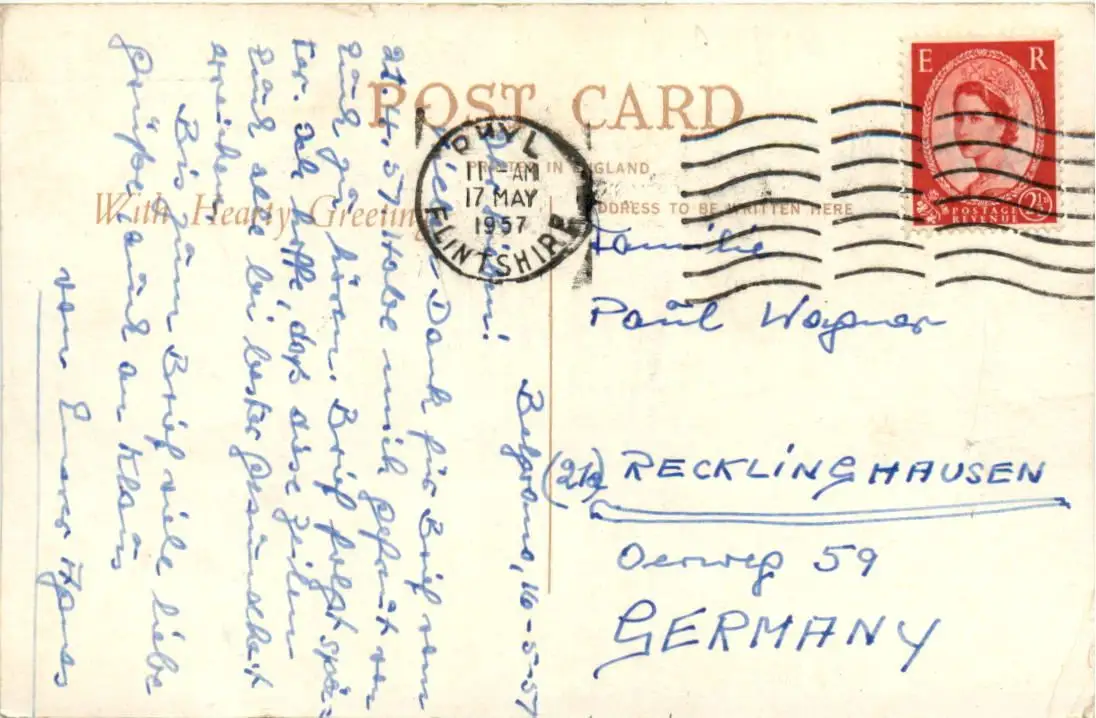 POST CARD
PRINTED IN ENGLAND
With Hearty Greetings
ADDRESS TO BE WRITTEN HERE
E R
POSTAGE
REVENUE
2½D
RHYL
11 - AM
17 MAY
1957
FLINTSHIRE
Belgrano, 16-5-57
Vielen Dank für Brief vom
21.4.57. Habe mich gefreut von
Euch zu hören. Brief folgt spä-
ter. Ich hoffe, dass diese Zeilen
Euch alle bei bester Gesundheit
erreichen.
Bis zum Brief viele liebe
Grüße, auch an Klaus
von Eurer
Familie
Paul Wagner
(21a) RECKLINGHAUSEN
Oerweg 59
GERMANY